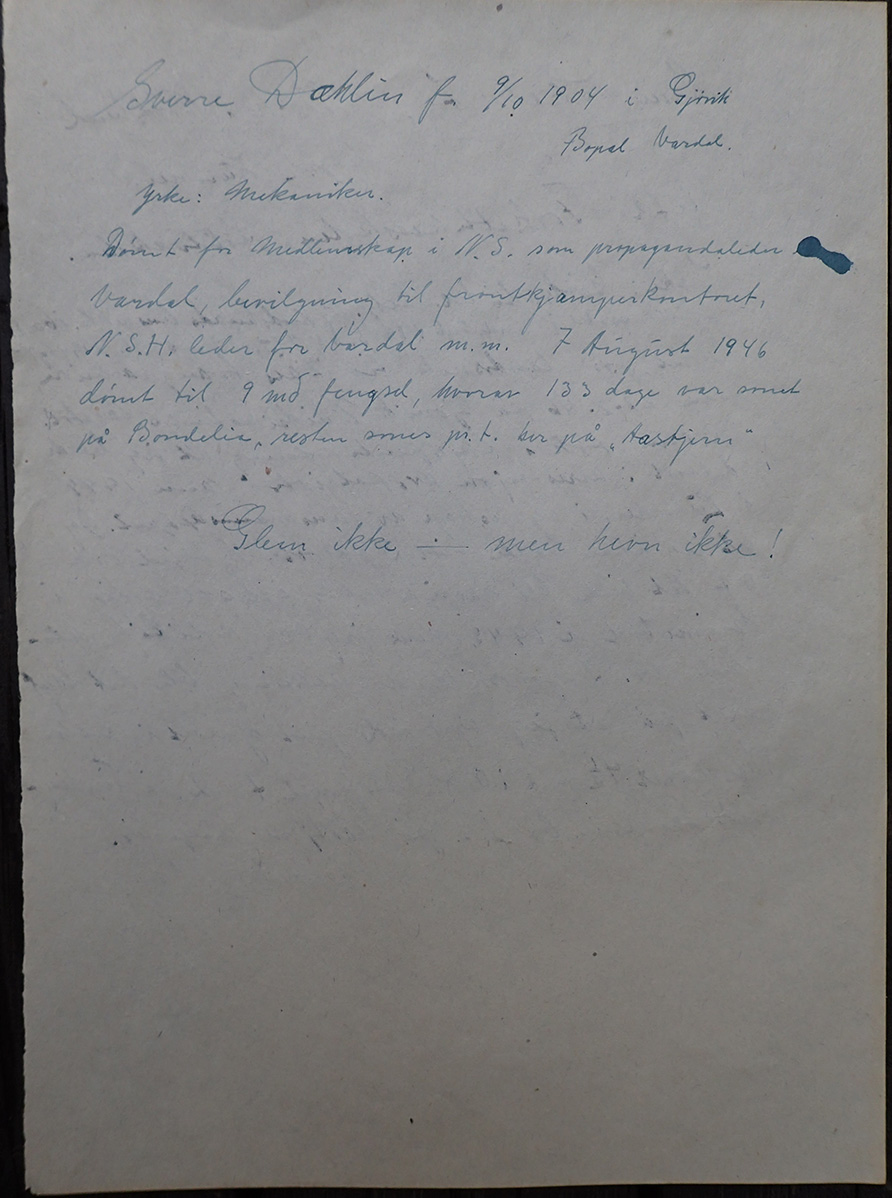 Sverre Dæhlin f. 9/10 1904 i Gjøvik
Bopel Vardal.
Yrke: Mekaniker.
Dømt for Medlemskap i N.S. som propagandaleder i
Vardal, bevilgning til frontkjæmperkontoret,
N.S.H. leder for Vardal m.m. 7 August 1946
dømt til 9 md fengsel, hvorav 133 dage var sonet
på Bondelia, resten sones p.t. her på „Aastjern"
Glem ikke — men hevn ikke!